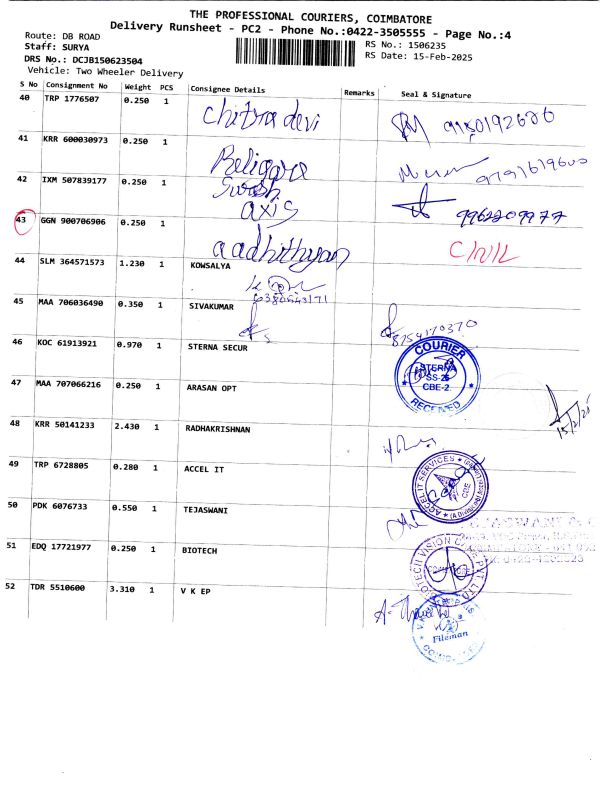 THE PROFESSIONAL COURIERS, COIMBATORE
Delivery Runsheet - PC2 - Phone No.:0422-3505555 - Page No.:4
Route: DB ROAD
RS No.: 1506235
Staff: SURYA
RS Date: 15-Feb-2025
DRS No.: DCJB150623504
Vehicle: Two Wheeler Delivery
S No Consignment No Weight PCS Consignee Details Remarks Seal & Signature
40 TRP 1776507 0.250 1 Chitra devi
41 KRR 600030973 0.250 1
42 IXM 507839177 0.250 1 Suresh
axis 9962209977
43 GGN 900706906 0.250 1 aadhithyan
44 SLM 364571573 1.230 1 KOWSALYA
6380543171
45 MAA 706036490 0.350 1 SIVAKUMAR
8754170370
46 KOC 61913921 0.970 1 STERNA SECUR
COURIER
STERNA
SS-26
CBE-2
RECEIVED
47 MAA 707066216 0.250 1 ARASAN OPT
15/2/25
48 KRR 50141233 2.430 1 RADHAKRISHNAN
49 TRP 6728805 0.280 1 ACCEL IT
ACCEL IT SERVICES
CBE
50 PDK 6076733 0.550 1 TEJASWANI
51 EDQ 17721977 0.250 1 BIOTECH
BIOTECH VISION CARE PVT LTD
52 TDR 5510600 3.310 1 V K EP
Fileman